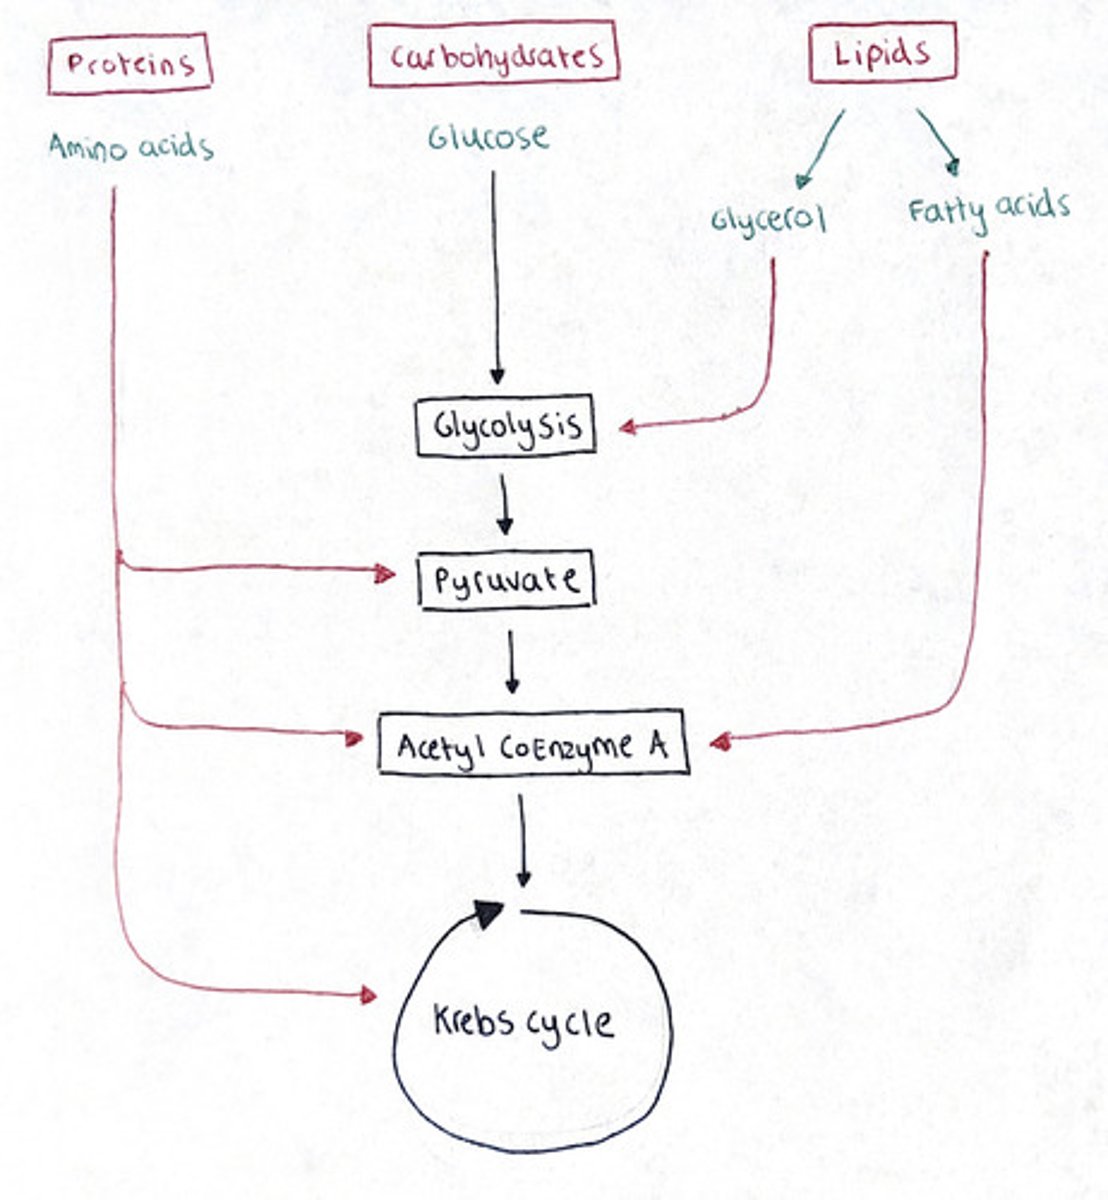 Proteins
Carbohydrates
Lipids
Amino acids
Glucose
Glycerol
Fatty acids
Glycolysis
Pyruvate
Acetyl CoEnzyme A
Krebs cycle